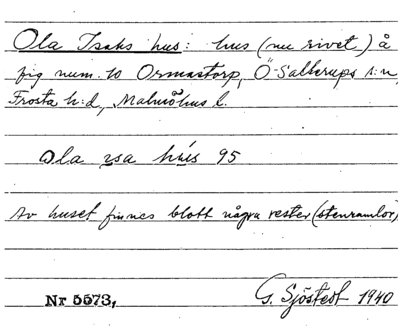 Ola Isaks hus: hus (nu rivet) å
fig num. 10 Ormastorp, Ö Sallerups s:n,
Frosta h:d, Malmöhus l.
ola hús 95
Av huset finnes blott några rester (stenramlor)
Nr 5573,
G. Sjöstedt 1940